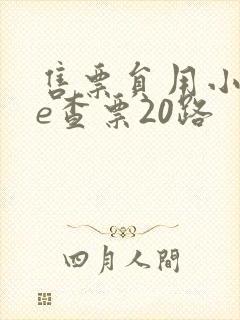 售票员用小
e查票20路
四月人間